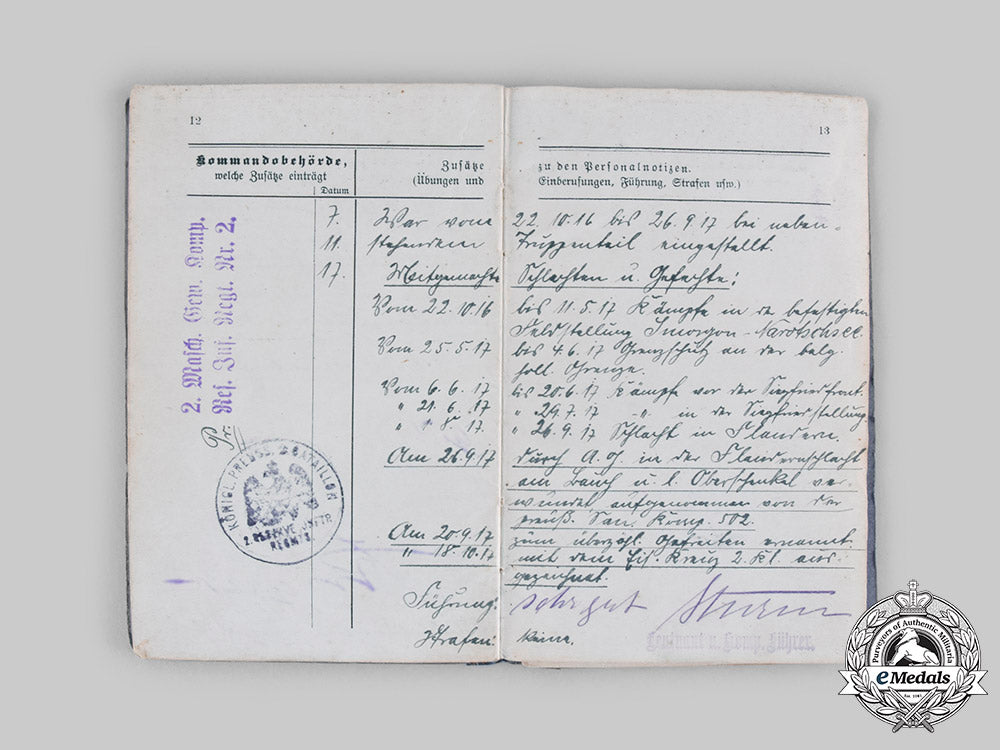 12
13
Kommandobehörde,
welche Zusätze einträgt
Datum
Zusätze
(Übungen und
zu den Personalnotizen.
Einberufungen, Führung, Strafen usw.)
2. Masch. Gew. Komp.
Res. Inf. Regt. Nr. 2.
Pr.
7. War vom 22.10.16 bis 26.9.17 bei neben-
11. stehendem Truppenteil eingestellt.
17. Mitgemachte Schlachten u. Gefechte:
Vom 22.10.16 bis 11.5.17 Kämpfe in der befestigten
Feldstellung Smorgon-Narotschsee
Vom 25.5.17 bis 4.6.17 Grenzschutz an der belg.
holl. Grenze.
Vom 6.6.17 bis 20.6.17 Kämpfe vor der Siegfriedfront.
" 21.6.17 " 29.7.17 -"- in der Siegfriedstellung
" 1 8.17. " 26.9.17 Schlacht in Flandern.
Am 26.9.17 durch A.G. in der Flandernschlacht
am Bauch u. l. Oberschenkel ver-
wundet aufgenommen von der
preuß. San. Komp. 502.
Am 20.9.17 zum überzähl. Gefreiten ernannt.
" 18.10.17 mit dem Eis. Kreuz 2. Kl. aus-
gezeichnet.
Führung: sehr gut
Sturm
Strafen: Keine.
Leutnant u. Komp. Führer.
KÖNIGL. PREUSS. 2. BATAILLON
2. RESERVE INFTR
REGMTS
Purveyors of Authentic Militaria
eMedals